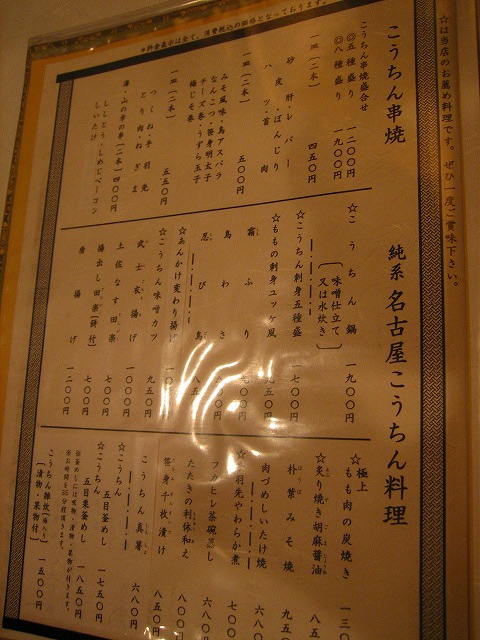 ☆は当店のお薦め料理です。ぜひ一度ご賞味下さい。
＊料金表示は全て、消費税込の価格となっております。
純系 名古屋こうちん料理
こうちん串焼
こうちん串焼盛合せ
◎五種盛り 一二〇〇円
◎八種盛り 一九〇〇円
一皿(二本) 四五〇円
砂肝・レバー
八皮・ぼんじり
ハツ・首肉
一皿(二本) 五〇〇円
みそ風味・鳥アスパラ
なんこつ・笹身明太子
チーズ巻・うずら玉子
梅じそ巻
一皿(二本) 五五〇円
つくね・手羽先
とり肉・ねぎま
海・山の幸の串(二本)四〇〇円
ししとう・しめじベーコン
しいたけ
☆こうちん鍋 一九〇〇円
(味噌仕立て又は水炊き)
☆こうちん刺身五種盛 一七〇〇円
☆もも刺身ユッケ風 九五〇円
霜ふり 九〇〇円
鳥わさ
忍び鳥 八五
☆あんかけ変わり揚げ
☆こうちん味噌カツ 九五〇円
武士衣揚げ 七〇〇円
土佐なす田楽 七〇〇円
揚出し田楽(餅付) 七〇〇円
唐揚げ 一二〇〇円
☆極上
もも肉の炭焼き 一三〇
☆炙り焼き胡麻醤油 八五
朴葉みそ焼 九五〇
肉づめしいたけ焼 六八
☆手羽先やわらか煮 七〇〇
フカヒレ茶碗蒸し 六八〇
たたきの利休和え 八〇〇
笹身千枚漬け 八五〇円
こうちん真薯 六八〇円
☆こうちん
五目釜めし 一七五〇円
☆こうちん
五目栗釜めし 一八五〇円
※釜めしには味噌・漬物・果物が付きます。
※お時間を35分程頂きます。
こうちん雑炊(梅入り)
(漬物・果物付) 一五〇〇円